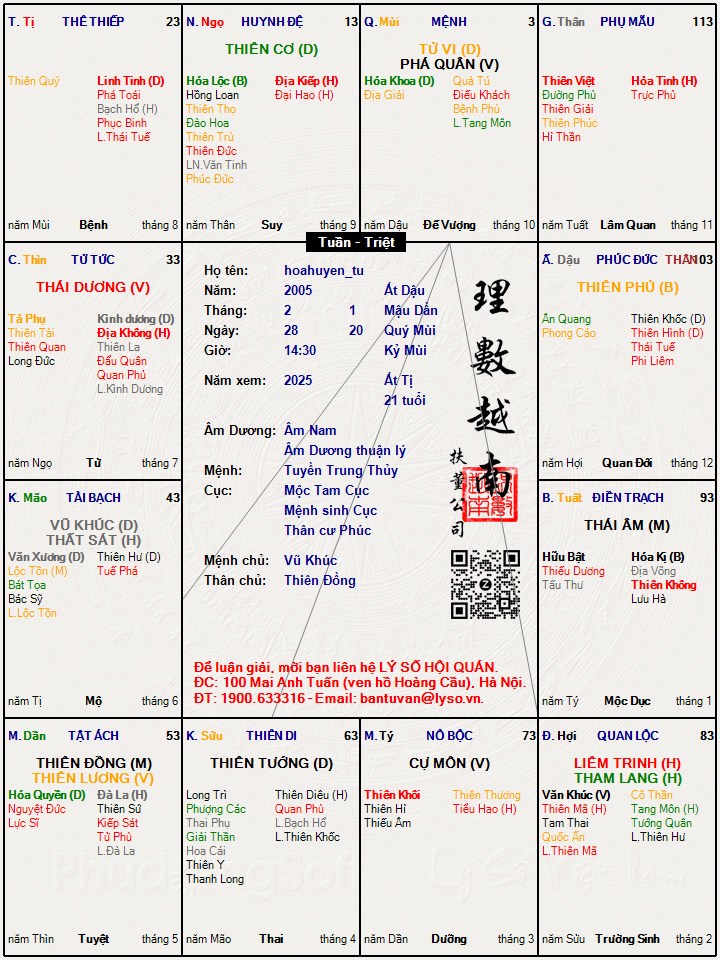 T. Tị THÊ THIẾP 23
Thiên Quý
Linh Tinh (D)
Phá Toái
Bạch Hổ (H)
Phục Binh
L.Thái Tuế
năm Mùi Bệnh tháng 8
N. Ngọ HUYNH ĐỆ 13
THIÊN CƠ (D)
Hóa Lộc (B)
Hồng Loan
Thiên Thọ
Đào Hoa
Thiên Trù
Thiên Đức
LN.Văn Tinh
Phúc Đức
Địa Kiếp (H)
Đại Hao (H)
năm Thân Suy tháng 9
Q. Mùi MỆNH 3
TỬ VI (D)
PHÁ QUÂN (V)
Hóa Khoa (D)
Địa Giải
Quả Tú
Điếu Khách
Bệnh Phù
L.Tang Môn
năm Dậu Đế Vượng tháng 10
G. Thân PHỤ MẪU 113
Thiên Việt
Đường Phù
Thiên Giải
Thiên Phúc
Hỉ Thần
Hỏa Tinh (H)
Trực Phù
năm Tuất Lâm Quan tháng 11
Tuần - Triệt
C. Thìn TỬ TỨC 33
THÁI DƯƠNG (V)
Tả Phụ
Thiên Tài
Thiên Quan
Long Đức
Kình dương (D)
Địa Không (H)
Thiên La
Đẩu Quân
Quan Phủ
L.Kình Dương
năm Ngọ Tử tháng 7
Họ tên: hoahuyen_tu
Năm: 2005 Ất Dậu
Tháng: 2 1 Mậu Dần
Ngày: 28 20 Quý Mùi
Giờ: 14:30 Kỷ Mùi
Năm xem: 2025 Ất Tị
21 tuổi
Âm Dương: Âm Nam
Âm Dương thuận lý
Mệnh: Tuyền Trung Thủy
Cục: Mộc Tam Cục
Mệnh sinh Cục
Thân cư Phúc
Mệnh chủ: Vũ Khúc
Thân chủ: Thiên Đồng
理數越南
扶董公司
Để luận giải, mời bạn liên hệ LÝ SỐ HỘI QUÁN.
ĐC: 100 Mai Anh Tuấn (ven hồ Hoàng Cầu), Hà Nội.
ĐT: 1900.633316 - Email: bantuvan@lyso.vn.
Ấ. Dậu PHÚC ĐỨC THÂN 103
THIÊN PHỦ (B)
Ân Quang
Phong Cáo
Thiên Khốc (D)
Thiên Hình (D)
Thái Tuế
Phi Liêm
năm Hợi Quan Đới tháng 12
K. Mão TÀI BẠCH 43
VŨ KHÚC (D)
THẤT SÁT (H)
Văn Xương (D)
Lộc Tồn (M)
Bát Tọa
Bác Sỹ
L.Lộc Tồn
Thiên Hư (D)
Tuế Phá
năm Tị Mộ tháng 6
B. Tuất ĐIỀN TRẠCH 93
THÁI ÂM (M)
Hữu Bật
Thiếu Dương
Tấu Thư
Hóa Kị (B)
Địa Võng
Thiên Không
Lưu Hà
năm Tý Mộc Dục tháng 1
M. Dần TẬT ÁCH 53
THIÊN ĐỒNG (M)
THIÊN LƯƠNG (V)
Hóa Quyền (D)
Nguyệt Đức
Lực Sĩ
Đà La (H)
Thiên Sứ
Kiếp Sát
Tử Phù
L.Đà La
năm Thìn Tuyệt tháng 5
K. Sửu THIÊN DI 63
THIÊN TƯỚNG (D)
Long Trì
Phượng Các
Thai Phụ
Giải Thần
Hoa Cái
Thiên Y
Thanh Long
Thiên Diêu (H)
Quan Phù
L.Bạch Hổ
L.Thiên Khốc
năm Mão Thai tháng 4
M. Tý NÔ BỘC 73
CỰ MÔN (V)
Thiên Khôi
Thiên Hỉ
Thiếu Âm
Thiên Thương
Tiểu Hao (H)
năm Dần Dưỡng tháng 3
Đ. Hợi QUAN LỘC 83
LIÊM TRINH (H)
THAM LANG (H)
Văn Khúc (V)
Thiên Mã (H)
Tam Thai
Quốc Ấn
L.Thiên Mã
Cô Thần
Tang Môn (H)
Tướng Quân
L.Thiên Hư
năm Sửu Trường Sinh tháng 2